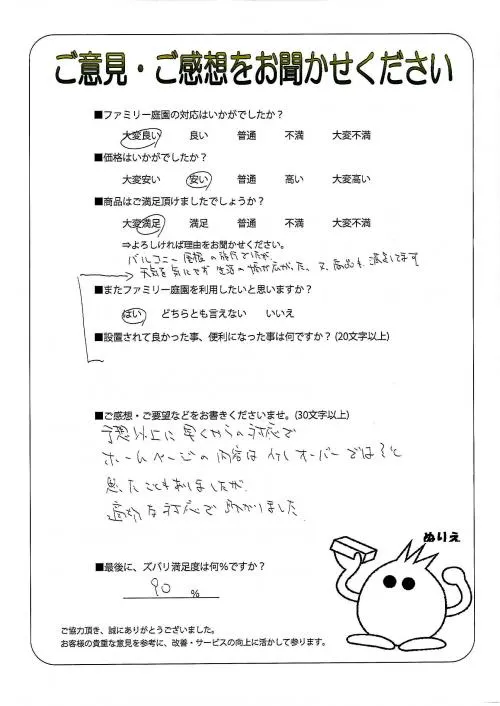 ご意見・ご感想をお聞かせください
■ファミリー庭園の対応はいかがでしたか？
大変良い 良い 普通 不満 大変不満
■価格はいかがでしたか？
大変安い 安い 普通 高い 大変高い
■商品はご満足頂けましたでしょうか？
大変満足 満足 普通 不満 大変不満
⇒よろしければ理由をお聞かせください。
バルコニー屋根の施行でしたが
天気を気にせず 生活の幅が広がった。又、商品も、満足してます
■またファミリー庭園を利用したいと思いますか？
はい どちらとも言えない いいえ
■設置されて良かった事、便利になった事は何ですか？(20文字以上)
■ご感想・ご要望などをお書きくださいませ。(30文字以上)
予想以上に早くからの対応で
ホームページの内容は少しオーバーでは？と
思たこともありましたが
適切な対応で助かりました
ぬりえ
■最後に、ズバリ満足度は何％ですか？
90 ％
ご協力頂き、誠にありがとうございました。
お客様の貴重な意見を参考に、改善・サービスの向上に活かして参ります。